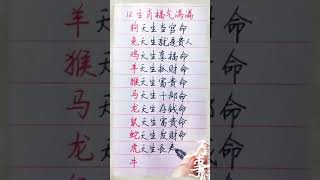 12生肖福气满满
狗天生当官命
兔天生就是贵人
鸡天生享福命
羊天生抓财命
猴天生富贵命
马天生干部命
龙天生存钱命
鼠天生富贵命
蛇天生发财命
虎天生长
牛
羊
猴
马
龙